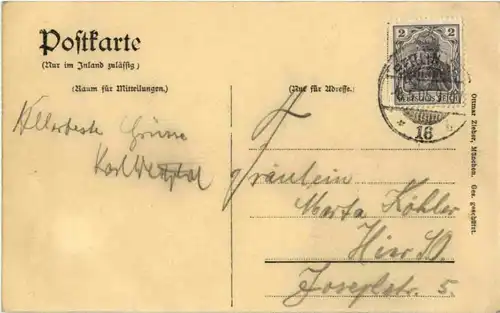 Postkarte
(Nur im Inland zulässig)
(Raum für Mitteilungen.)
(Nur für Adresse.)
Allerbeste Grüsse
Karl
Fräulein
Marta Köhler
Hier SO.
Josephstr. 5.
2 2
BERLIN
16
Ottmar Zieher, München. Ges. geschützt.